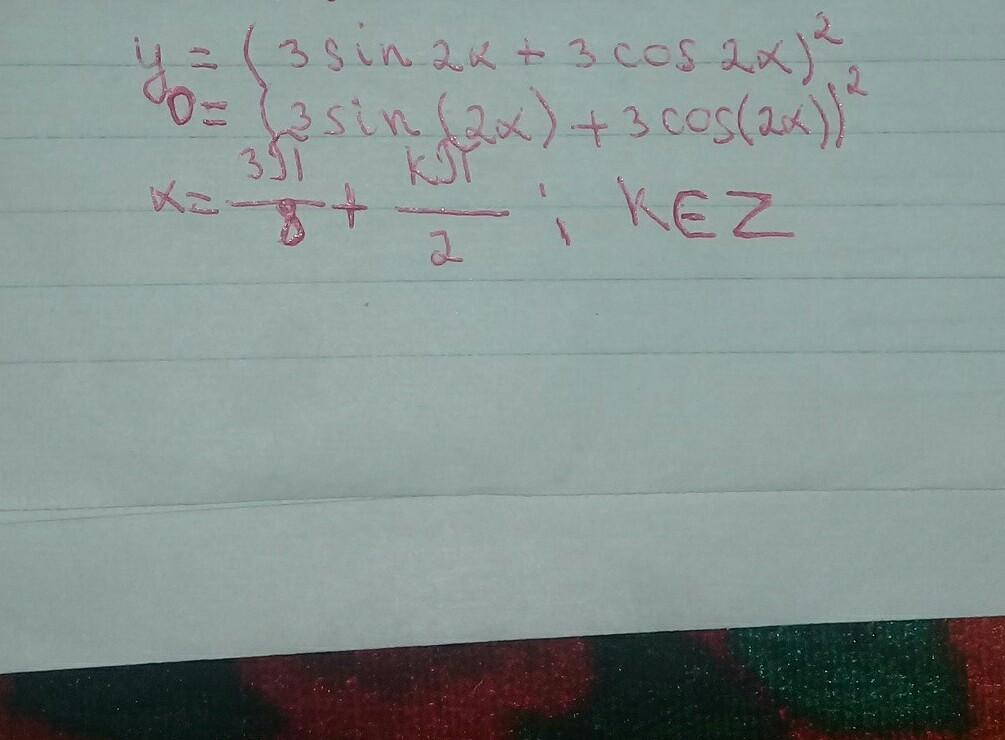 y = (3 sin 2x + 3 cos 2x)²
0 = (3 sin (2x) + 3 cos(2x))²
x = 3π/8 + kπ/2 ; k ∈ Z